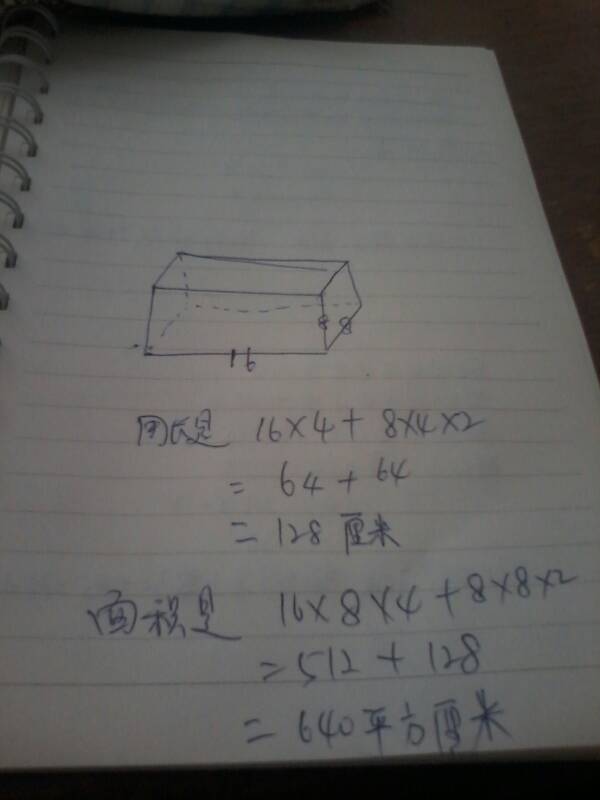 8 8
16
周长是 16×4+8×4×2
= 64+64
= 128 厘米
面积是 16×8×4+8×8×2
= 512+128
= 640平方厘米